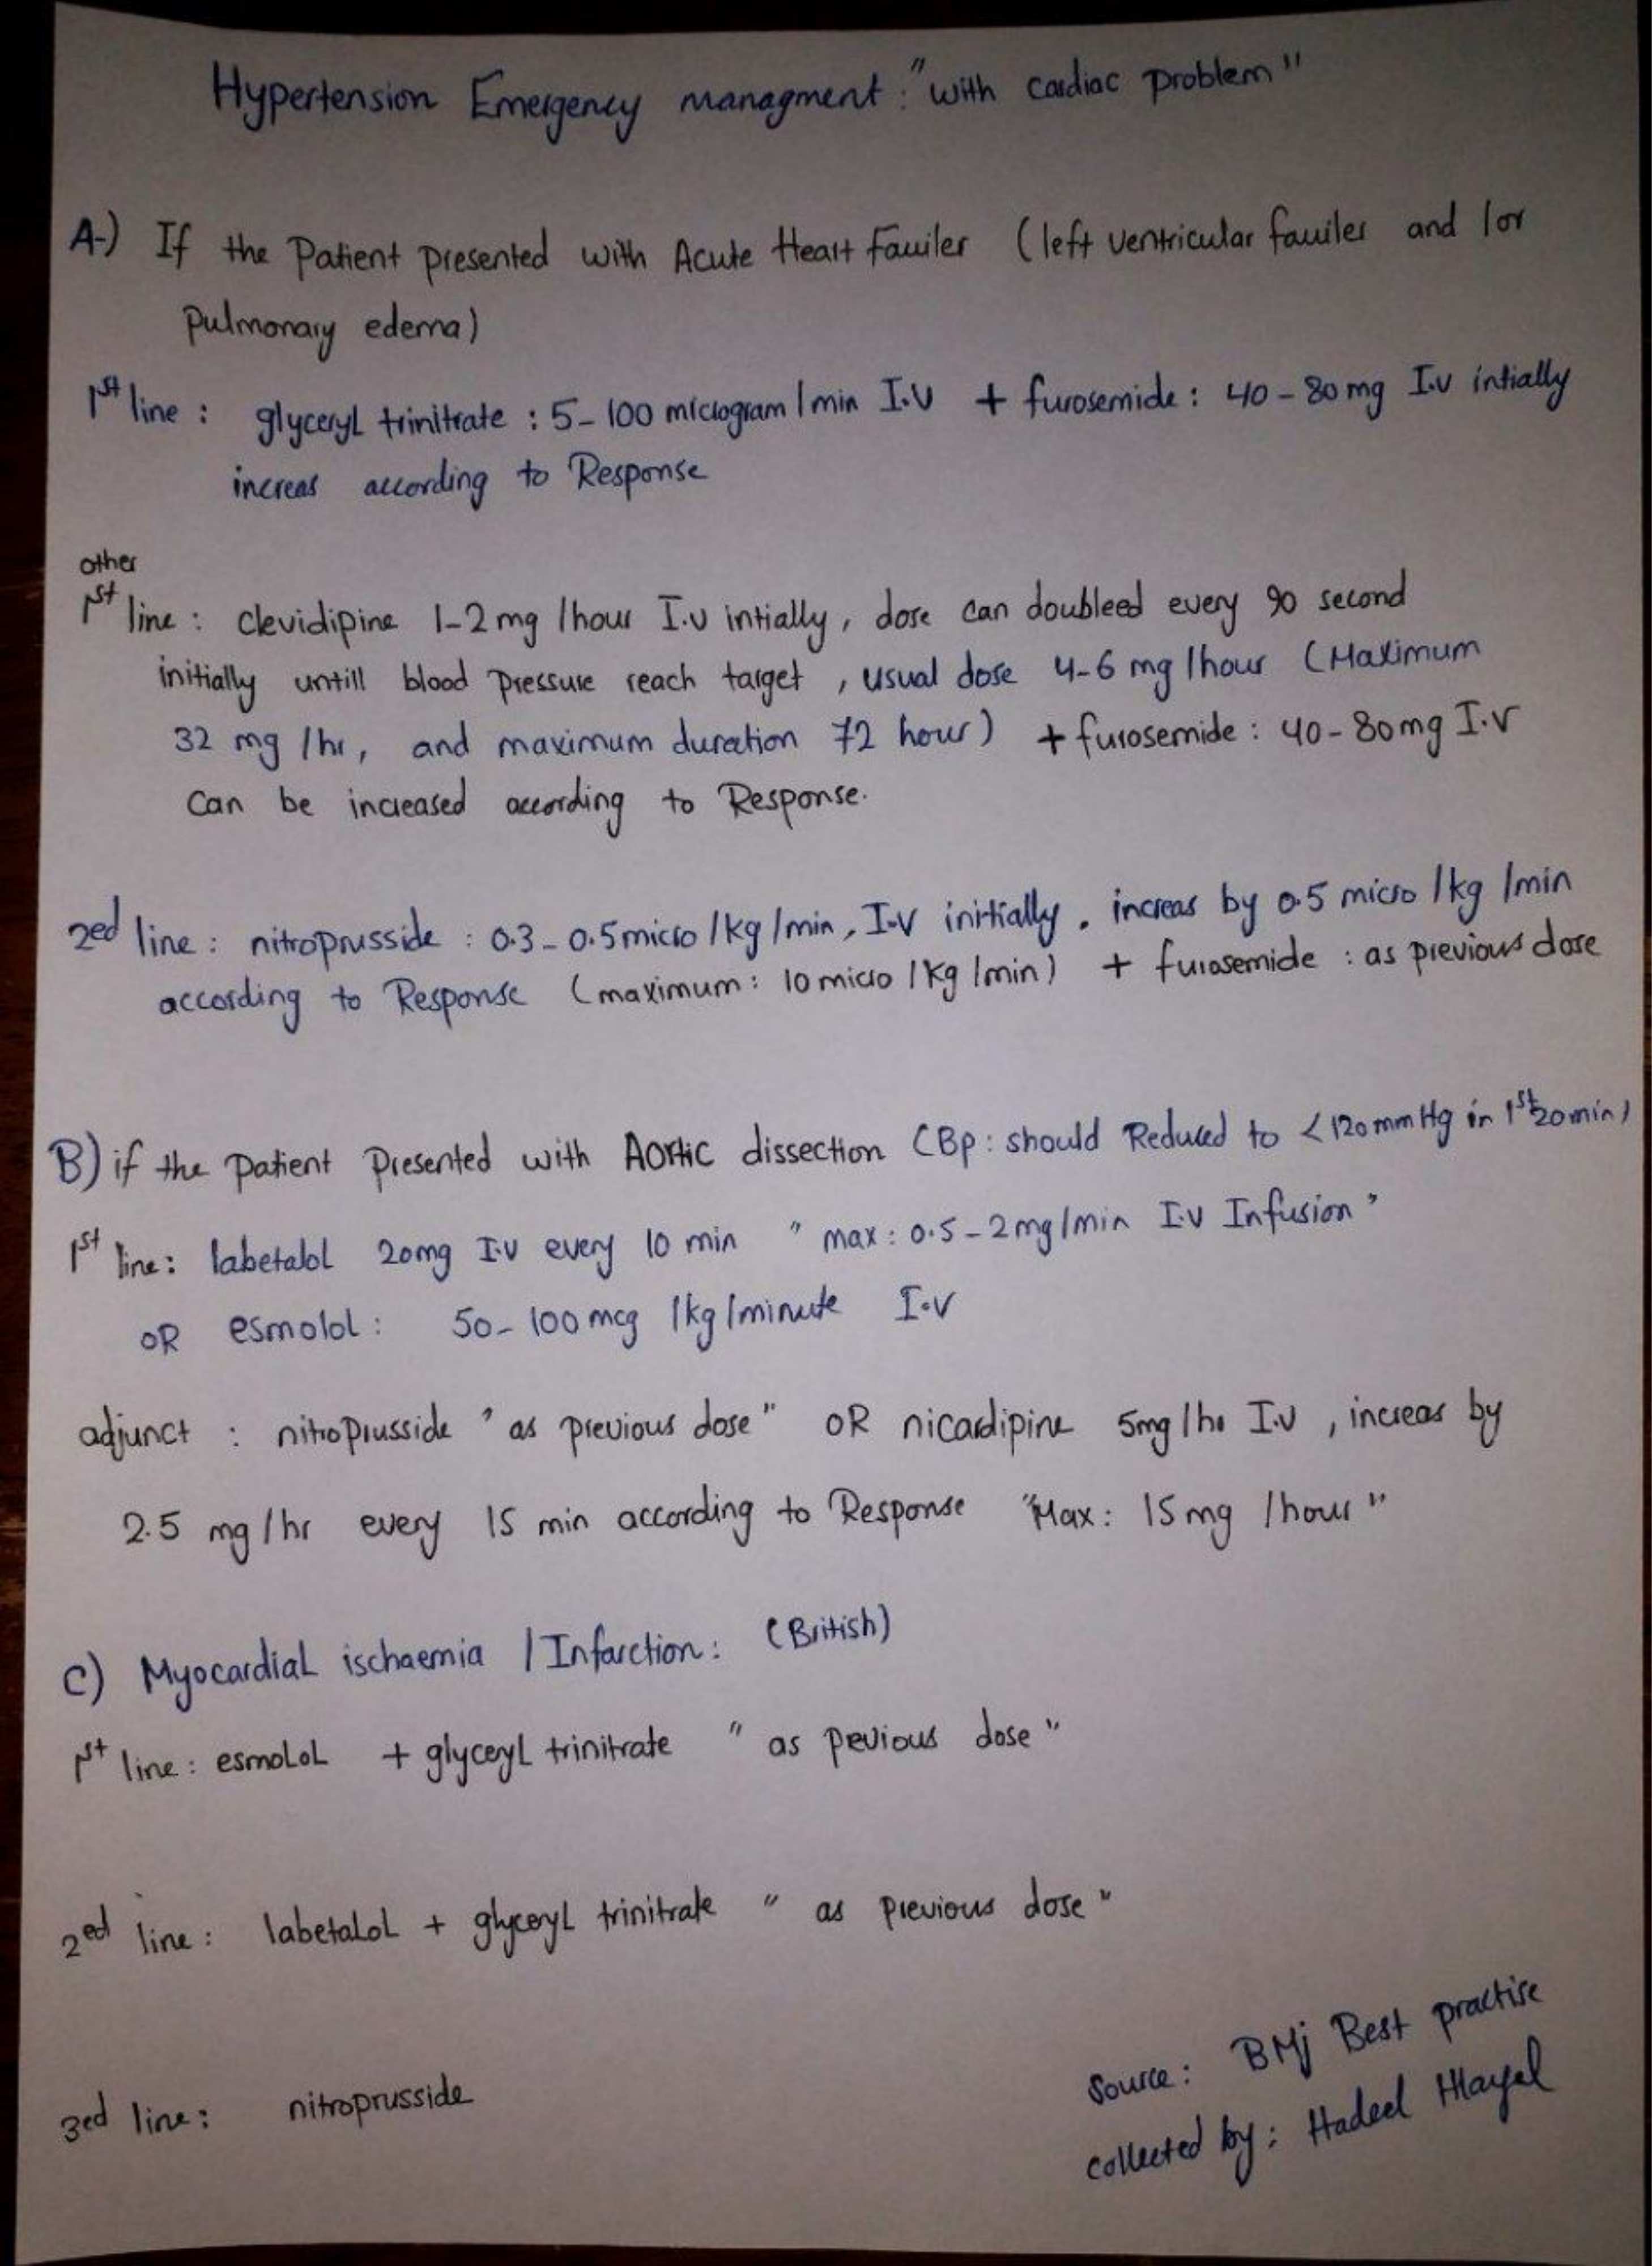 Hypertension Emergency managment : "with cardiac problem"
A-) If the Patient presented with Acute Heart fauiler (left ventricular fauiler and /or
pulmonary edema)
1st line : glyceryl trinitrate : 5-100 microgram/min I.V + furosemide : 40-80 mg I.V intially
increas according to Response
other
1st line : clevidipine 1-2 mg /hour I.V intially, dose can doubleed every 90 second
initially untill blood pressure reach target , usual dose 4-6 mg /hour (Maximum
32 mg /hr, and maximum duration 72 hour) + furosemide : 40-80 mg I.V
can be increased according to Response.
2ed line : nitroprusside : 0.3-0.5 micro /kg /min, I.V initially, increas by 0.5 micro /kg /min
according to Response (maximum : 10 micro /kg /min) + furosemide : as previous dose
B) if the patient presented with Aortic dissection (Bp : should Reduced to <120 mmHg in 1st 20 min)
1st line : labetalol 20mg I.V every 10 min " max : 0.5-2 mg/min I.V Infusion "
OR esmolol : 50-100 mcg /kg/minute I.V
adjunct : nitroprusside " as previous dose" OR nicardipine 5mg /hr I.V , increas by
2.5 mg/hr every 15 min according to Response "Max : 15 mg /hour"
C) Myocardial ischaemia / Infarction : (British)
1st line : esmolol + glyceryl trinitrate " as pevious dose "
2ed line : labetalol + glyceryl trinitrate " as previous dose "
3ed line : nitroprusside
Source : BMj Best practise
collected by : Hadeel Hlayel